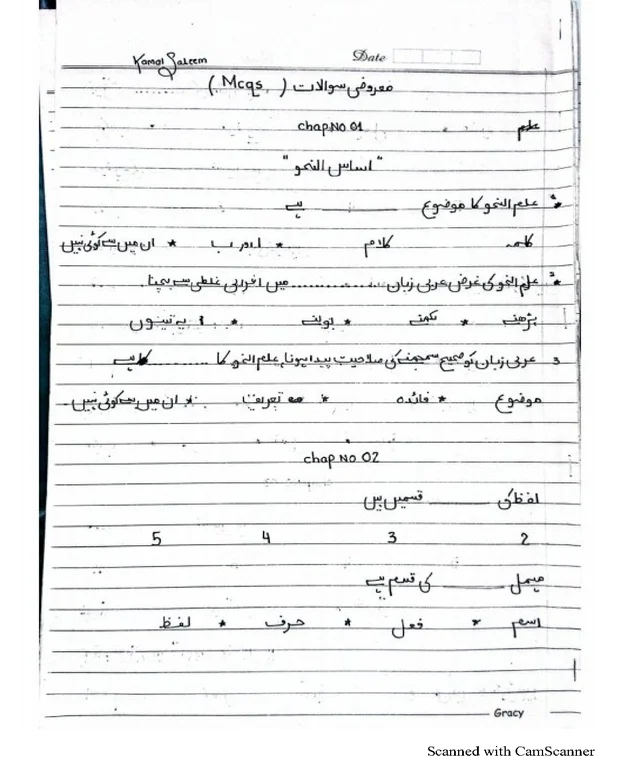 Kamal Saleem Date
معروضی سوالات ( Mcqs )
chap.No 01 علم
"اساس النحو"
علم النحو کا موضوع ______ ہے
کلمہ کلام * ا ور ب * ان میں سے کوئی نہیں
علم النحو کی غرض عربی زبان ............ میں اعرابی غلطی سے بچنا
پڑھنے * لکھنے * بولنے * یہ تینوں
3 عربی زبان کو صحیح سمجھنے کی صلاحیت پیدا ہونا علم النحو کا .......... ہے
موضوع * فائدہ * تعریف * ان میں سے کوئی نہیں
chap No 02
لفظ کی ______ قسمیں ہیں
2 3 4 5
مہمل ______ کی قسم ہے
اسم * فعل * حرف * لفظ
Gracy
Scanned with CamScanner